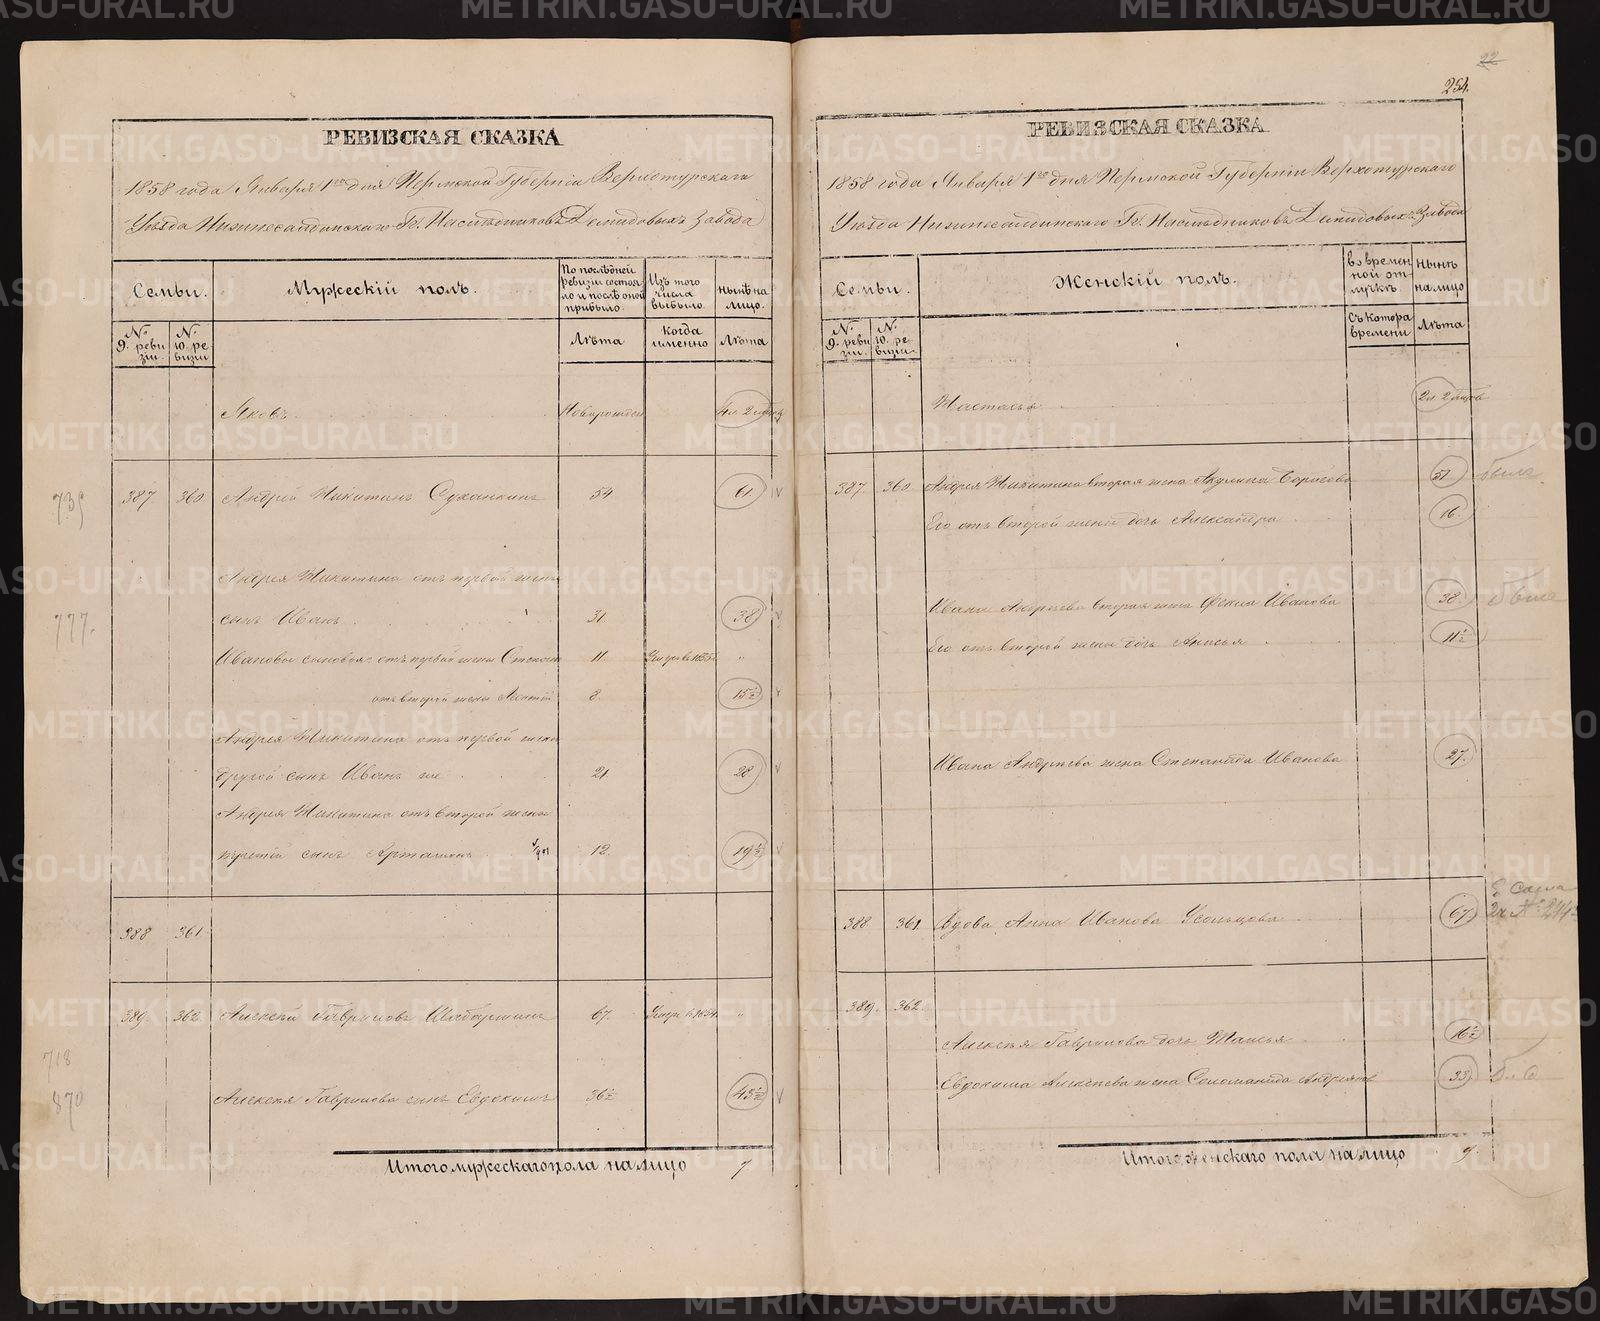 22
254.
РЕВИЗСКАЯ СКАЗКА
1858 года Января 1го дня Пермской Губерніи Верхотурскаго
Уѣзда Нижнесалдинскаго Гг. Наслѣдниковъ Демидовыхъ Завода
Семьи.
Мужескій полъ.
По послѣдней ревизіи состояло и послѣ оной прибыло.
Изъ того числа выбыло.
Нынѣ на лицо.
№ 9. ревизіи.
№ 10. ревизіи
Лѣта
Когда именно
Лѣта
Яковъ
735
387 360. Андрей Никитинъ Суханкинъ 54 61.
Андрея Никитина отъ первой жены
777.
сынъ Иванъ 31. 38
Ивановы сыновья: отъ первой жены 11.
отъ второй жены 8. 15½
Андрея Никитина отъ первой жены
другой сынъ Иванъ же 21 28
Андрея Никитина отъ второй жены
третій сынъ Артамонъ 12. 19½
388 361
389. 362 Алексѣй Гавриловъ 67.
718
870
Алексѣя Гаврилова сынъ Евдокимъ 36½ 43½
Итого мужескаго пола на лицо 7
РЕВИЗСКАЯ СКАЗКА
1858 года Января 1го дня Пермской Губерніи Верхотурскаго
Уѣзда Нижнесалдинскаго Гг. Наслѣдниковъ Демидовыхъ Завода
Семьи.
Женскій полъ.
Во временной отлучкѣ.
Нынѣ на лицо
№ 9. ревизіи.
№ 10. ревизіи.
Съ котора времени
Лѣта
Настасья
387. 360. Андрея Никитина вторая жена Акулина Борисова 51
Его отъ второй жены дочь Александра 16.
Ивана Андреева вторая жена Фекла Иванова 38.
Его отъ второй жены дочь Анисья 11½
Ивана Андреева жена Степанида Иванова 27.
388. 361. Вдова Анна Иванова Усольцова 67
389. 362.
Алексѣя Гаврилова дочь Таисья 16½
Евдокима Алексѣева жена Соломанида 33
Итого женскаго пола на лицо 9.
METRIKI.GASO-URAL.RU